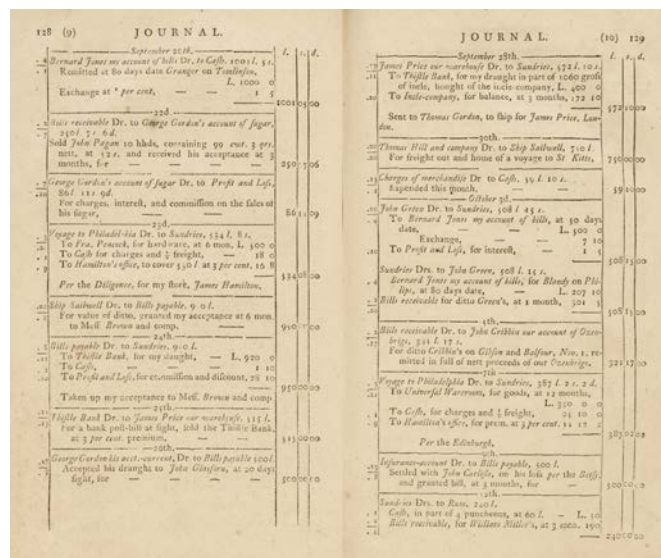 128 (9) JOURNAL.
l. s. d.
September 20th.
Bernard Jones my account of bills Dr. to Cash. 1001 l. 5 s.
Remitted at 80 days date Granger on Tomlinson,
L. 1000 0
Exchange at per cent, — — 1 5
1001 05 00
22d.
Bills receivable Dr. to George Gordon's account of sugar,
250 l. 7 s. 6 d.
Sold John Pagan 10 hhds, containing 99 cwt. 3 qrs.
nett, at 52 s. and received his acceptance at 3
months, for — — —
250 7 06
George Gordon's account of sugar Dr. to Profit and Loss,
86 l. 11 s. 9 d.
For charges, interest, and commission on the sales of
his sugar, — — —
86 11 09
23d.
Voyage to Philadelphia Dr. to Sundries, 534 l. 8 s.
To Fra. Peacock, for hardware, at 6 mon. L. 500 0
To Cash for charges and freight, — 18 0
To Hamilton's office, to cover 550 l. at 3 per cent. 16 8
534 08 00
Per the Diligence, for my stock, James Hamilton.
Ship Sailwell Dr. to Bills payable,
For value of ditto, granted my acceptance at 6 mon.
to Mess. Brown and comp. —
24th.
Bills payable Dr. to Sundries.
To Thistle Bank, for my draught, — L. 920 0
To Cash, — — — 1 10
To Profit and Loss, for commission and discount, 28 10
950 00 00
Taken up my acceptance to Mess. Brown and comp.
25th.
Thistle Bank Dr. to James Price our warehouse.
For a bank post-bill at sight, sold the Thistle Bank
at 3 per cent. premium, — —
26th.
George Gordon his acct.-current, Dr. to Bills payable 500 l.
Accepted his draught to John Glassford, at 20 days
sight, for — — —
JOURNAL. (10) 129
l. s. d.
September 28th.
James Price our warehouse Dr. to Sundries, 572 l. 10 s.
To Thistle Bank, for my draught in part of 1060 gross
of incle, bought of the incle-company, L. 400 0
To Incle-company, for balance, at 3 months, 172 10
572 10 00
Sent to Thomas Gordon, to ship for James Price, Lon-
don.
30th.
Thomas Hill and company Dr. to Ship Sailwell, 750 l.
For freight out and home of a voyage to St Kitts,
750 00 00
Charges of merchandise Dr to Cash, 59 l. 10 s.
Expended this month, — —
59 10 00
October 3d.
John Green Dr. to Sundries, 508 l 15 s.
To Bernard Jones my account of bills, at 50 days
date, — — L. 500 0
Exchange, — 7 10
To Profit and Loss, for interest, — 1 5
508 15 00
Sundries Drs. to John Green, 508 l. 15 s.
Bernard Jones my account of bills, for Blandy on Phi-
lips, at 80 days date, L. 207 10
Bills receivable for ditto Green's, at 1 month, 301 5
508 15 00
5th.
Bills receivable Dr. to John Cribbin our account of Ozen-
brigs, 321 l. 17 s.
For ditto Cribbin's on Gibson and Balfour, Nov. 1. re-
mitted in full of nett proceeds of our Ozenbrigs.
321 17 00
7th
Voyage to Philadelphia Dr. to Sundries, 387 l. 2 s. 2 d.
To Universal Wareroom, for goods, at 12 months,
L. 350 0 0
To Cash, for charges and freight,
To Hamilton's office, for prem. at 3 per cent.
Per the Edinburgh.
9th.
Insurance-account Dr. to Bills payable, 500 l.
Settled with John Carlisle, on his loss per the Betsy,
and granted bill, at 3 months, for —
500 00 00
12th.
Sundries Drs. to Rum, 240 l.
Cash, in part of 4 puncheons, at 60 l. — L. 50
Bills receivable, for William Miller's, at 3 mon. 190
240 00 00